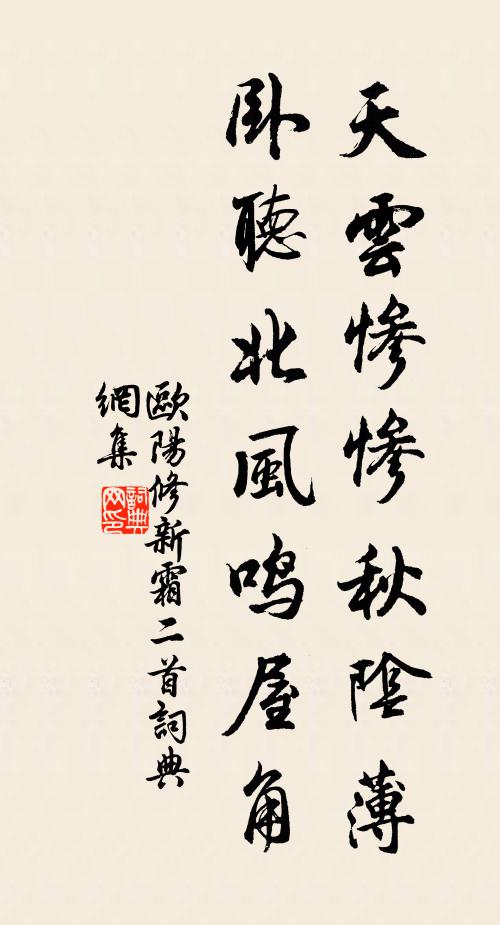 天雲慘慘秋陰薄
臥聽北風鳴屋角
歐陽修新霜二首詞典
網集
詞典
网印